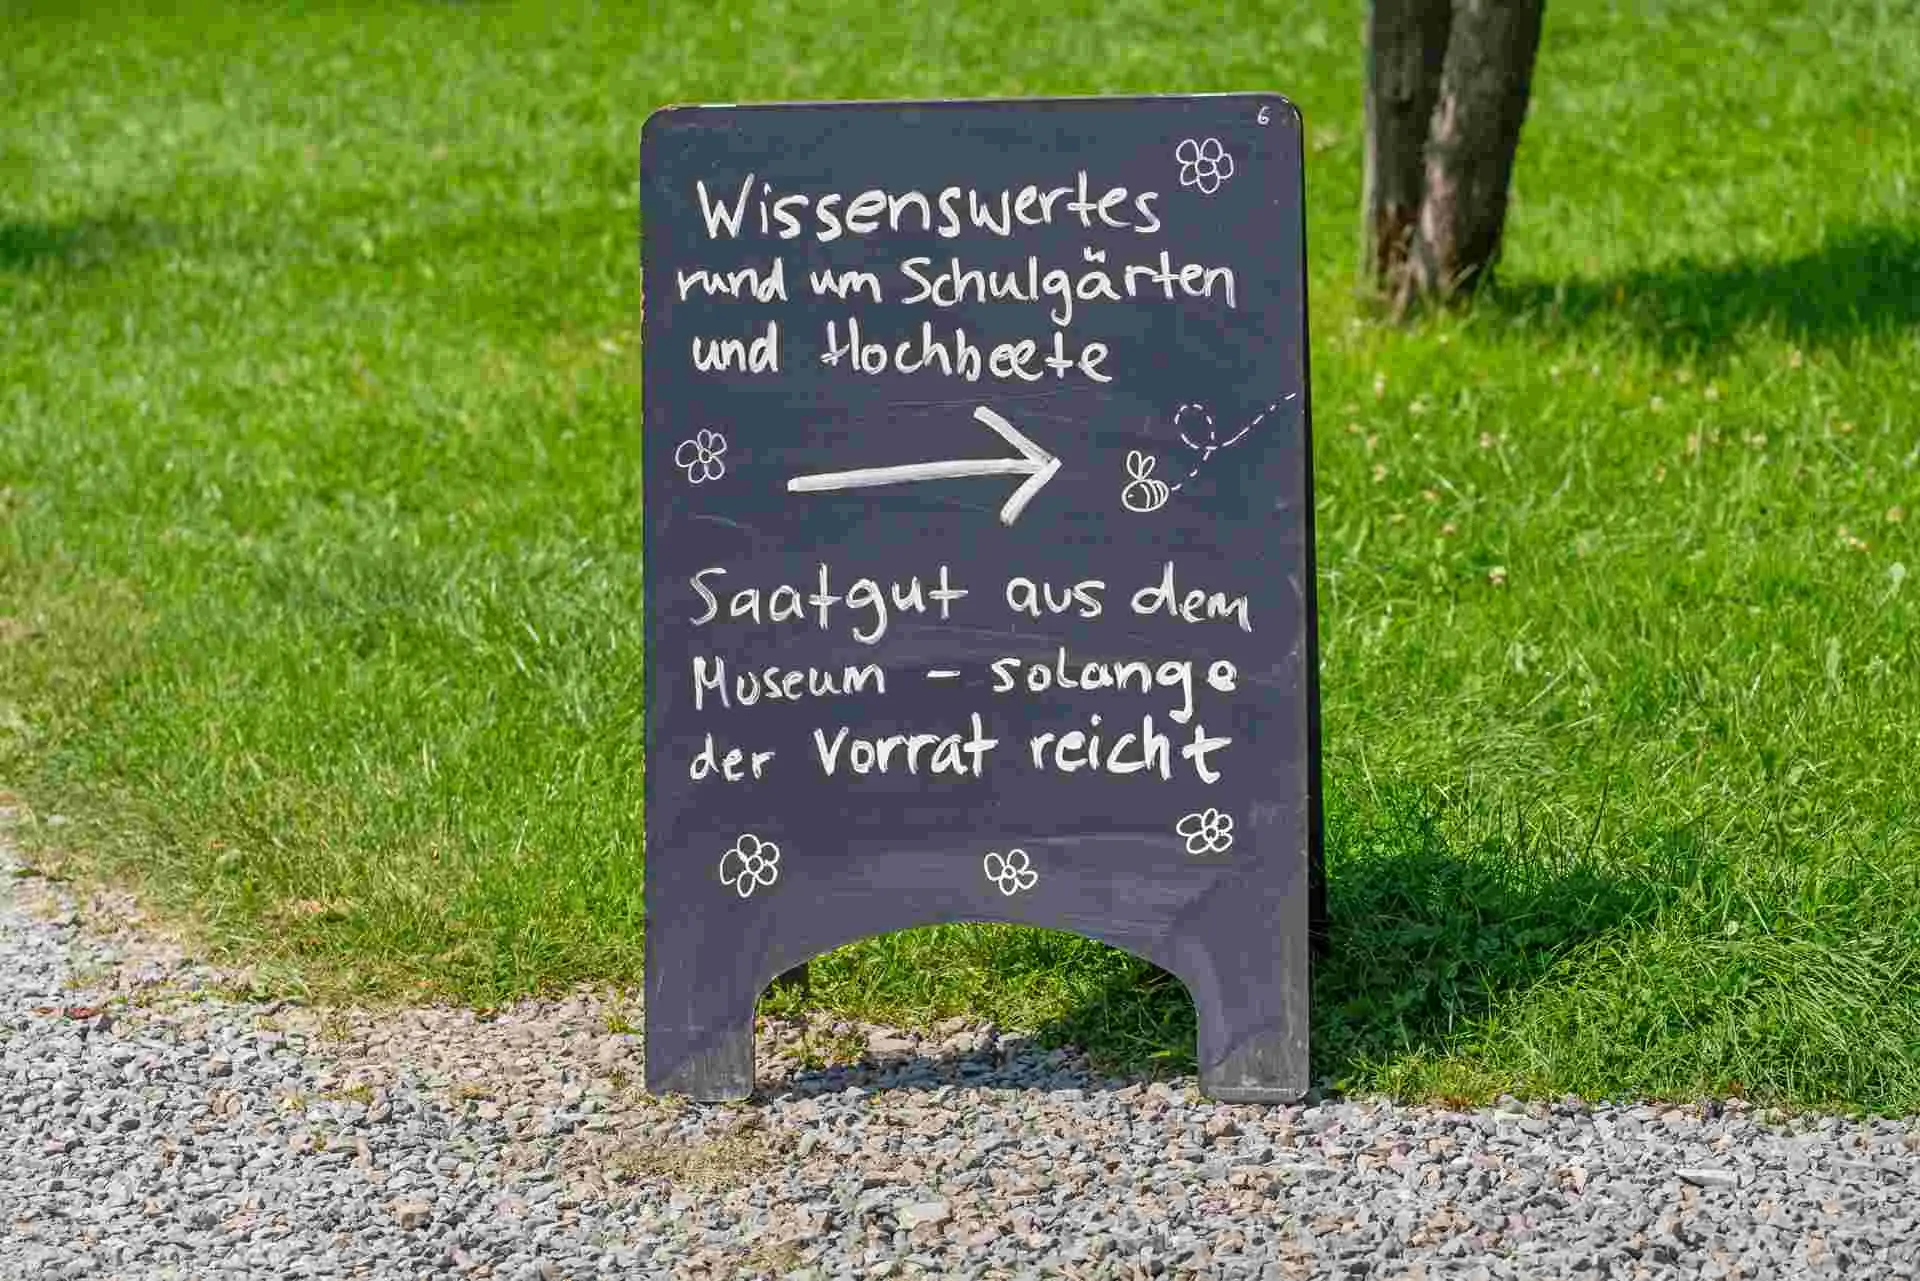 6
Wissenswertes
rund um Schulgärten
und Hochbeete
Saatgut aus dem
Museum - solange
der Vorrat reicht